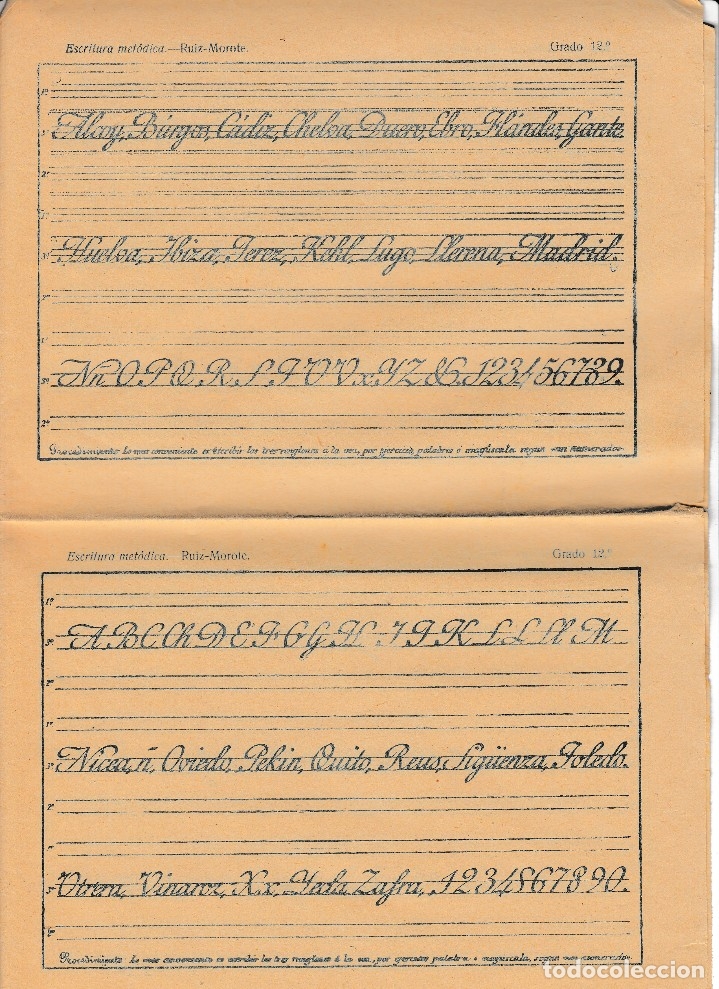 Escritura metódica.—Ruiz-Morote. Grado 12.º
1º
3º Alcoy, Búrgos, Cádiz, Chelva, Duero, Ebro, Flándes, Gante.
2º
1º
3º Huelva, Ibiza, Jerez, Kehl, Lugo, Llerena, Madrid.
2º
1º
3º N ñ O P Q R S T U V x Y Z &. 123456789.
2º
Procedimiento lo mas conveniente es escribir los tres renglones á la vez, por ejercicio palabra ó mayúscula, segun su numerador.
Escritura metódica.—Ruiz-Morote. Grado 12.º
1º
3º A B C Ch D E F G G H I J K L L Ll M
2º
1º
3º Nicea, ñ, Oviedo, Pekin, Quito, Reus, Sigüenza, Toledo.
2º
1º
3º Utrera, Vinaroz, X x, Yecla Zafra, 1234567890.
Procedimiento lo mas conveniente es escribir los tres renglones á la vez, por palabra ó mayúscula, segun
todocoleccion.net